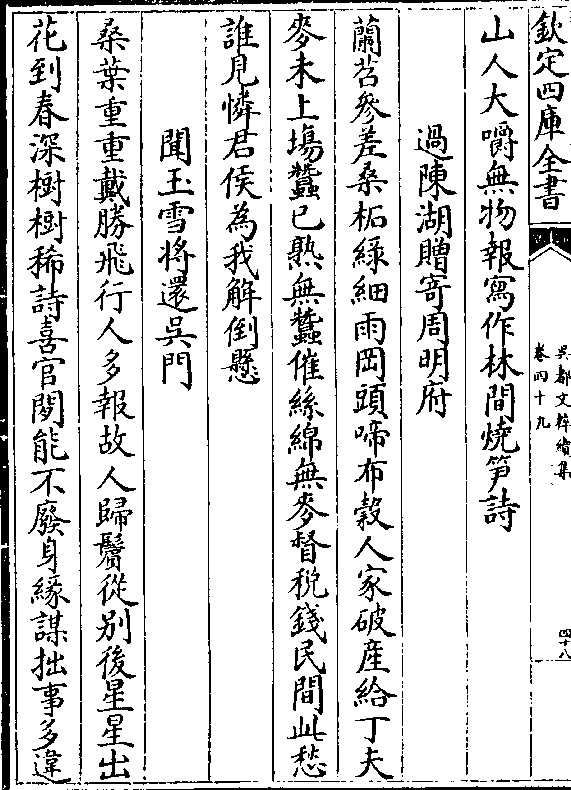 欽定四庫全書
吳都文粹續集
卷四十九
四十八
山人大嚼無物報寫作林間燒筍詩
過陳湖贈寄周明府
蘭苕參差桑柘綠細雨岡頭啼布穀人家破産給丁夫
麥未上塲蠶已熟無蠶催絲綿無麥督税錢民間此愁
誰見憐君侯為我解倒懸
聞玉雪將還吳門
桑葉重重戴勝飛行人多報故人歸鬢從别後星星出
花到春深樹樹稀詩喜官閒能不廢身緣謀拙事多違